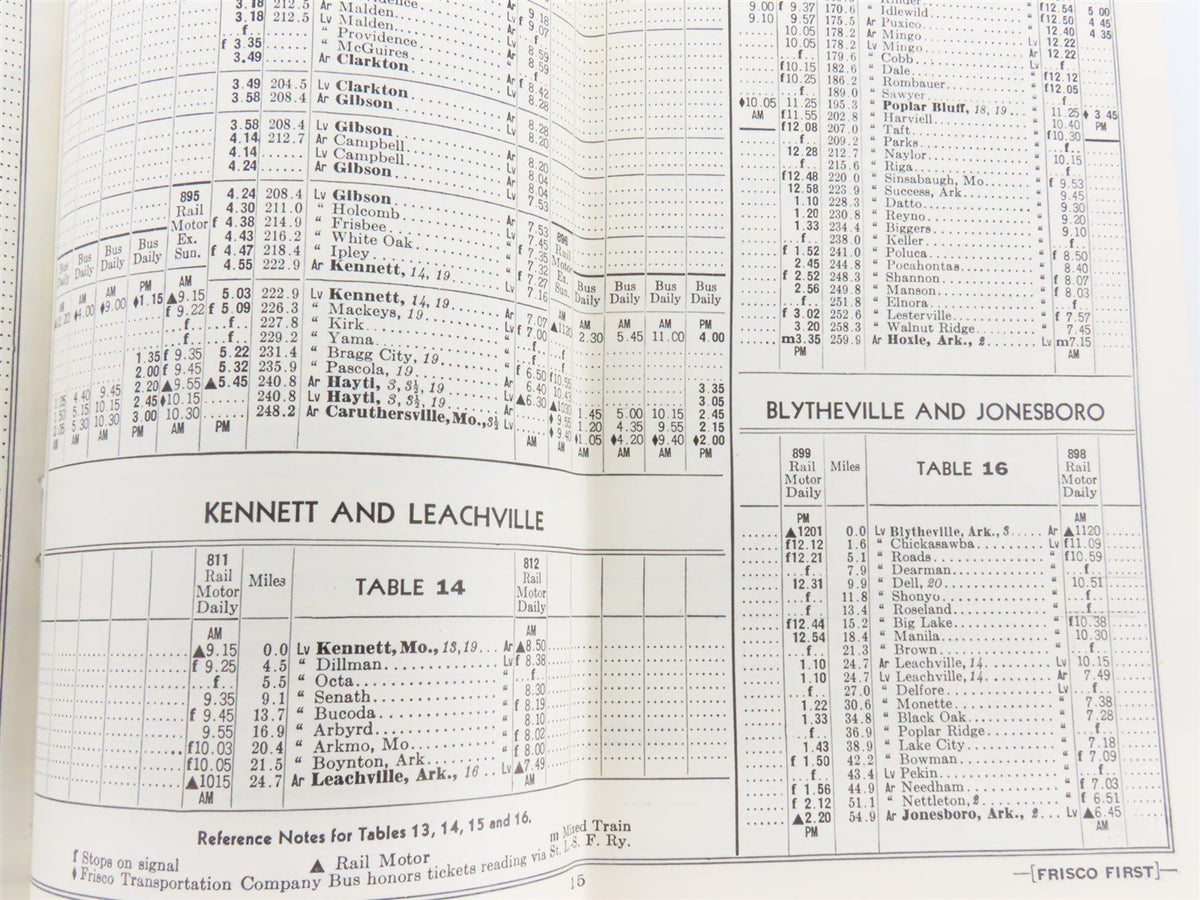 3.18 212.5 Ar Malden 9.18
3.18 212.5 Lv Malden Lv f 9.07
f “ Providence f
f 3.35 “ McGuires 8.59
3.49 Ar Clarkton Lv 8.59
3.49 204.5 Lv Clarkton f 8.42
3.58 208.4 Ar Gibson 8.28
3.58 208.4 Lv Gibson 8.28
4.14 212.7 Ar Campbell 8.20
4.14 Lv Campbell Ar 8.20
4.24 Ar Gibson Lv 8.04
895 Rail Motor Ex. Sun.
896 Rail Motor Ex. Sun.
4.24 208.4 Lv Gibson 7.53
4.30 211.0 “ Holcomb Ar 7.53
f 4.38 214.9 “ Frisbee Lv 7.45
4.43 216.2 “ White Oak f 7.35
f 4.47 218.4 “ Ipley 7.32
4.55 222.9 Ar Kennett, 14, 19 f 7.27
7.16
Bus Daily Bus Daily Bus Daily Bus Daily
Bus Daily Bus Daily Bus Daily Bus Daily
AM AM AM PM AM
♦4.00 ♦9.00 ♦1.15 ▲9.15 5.03 222.9 Lv Kennett, 14, 19 7.07 ▲1120 2.30 5.45 11.00 4.00
f 9.22 f 5.09 226.3 “ Mackeys, 19 f 7.00
f f 227.8 “ Kirk f
f f 229.2 “ Yama f f
1.35 f 9.35 5.22 231.4 “ Bragg City, 19 f 6.50 f10.55
2.00 f 9.45 5.32 235.9 “ Pascola, 19 6.40 10.43
1.05 4.40 9.45 2.20 ▲9.55 ▲5.45 240.8 Ar Hayti, 3, 3½, 19 Lv ▲6.30 ▲1030 3.35
1.50 5.15 10.15 2.45 ♦10.15 240.8 Lv Hayti, 3, 3½, 19 Ar ♦9.55 1.45 5.00 10.15 3.05
2.05 5.30 10.30 3.00 10.30 248.2 Ar Caruthersville, Mo., 3½ Lv ♦9.40 1.20 4.35 9.55 2.45
♦1.05 ♦4.20 ♦9.40 2.15
♦2.00
AM AM AM PM AM PM AM AM AM AM AM PM
KENNETT AND LEACHVILLE
811 Rail Motor Daily Miles TABLE 14 812 Rail Motor Daily
AM AM
▲9.15 0.0 Lv Kennett, Mo., 13, 19 Ar ▲8.50
f 9.25 4.5 “ Dillman Lv f 8.38
f 5.5 “ Octa “ f
9.35 9.1 “ Senath “ 8.30
f 9.45 13.7 “ Bucoda “ f 8.19
9.55 16.9 “ Arbyrd “ 8.10
f10.03 20.4 “ Arkmo, Mo. “ f 8.02
f10.05 21.5 “ Boynton, Ark. “ f 8.00
▲1015 24.7 Ar Leachville, Ark., 16 Lv ▲7.49
AM AM
Reference Notes for Tables 13, 14, 15 and 16.
f Stops on signal ▲ Rail Motor m Mixed Train
♦Frisco Transportation Company Bus honors tickets reading via St. L.-S. F. Ry.
15
9.00 f 9.37 170.6 “ Idlewild f12.54 5 00
9.10 9.57 175.5 Ar Puxico “ f12.50 4 45
10.05 178.2 Ar Mingo 12.40 4 35
10.05 178.2 Lv Mingo Lv 12.22
f 179.6 “ Cobb Ar 12.22
f10.15 182.6 “ Dale Lv f
f10.25 186.2 “ Rombauer “ f12.12
f 189.0 “ Sawyer “ f12.05
♦10.05 11.25 195.3 “ Poplar Bluff, 18, 19 “ f
AM f11.55 202.8 “ Harviell “ 11.25 ♦ 3 45
f12.08 207.0 “ Taft “ 10.40 PM
f 209.2 “ Parks “ f10.30
12.28 212.7 “ Naylor “ f
f 215.6 “ Riga “ 10.15
f12.48 220.0 “ Sinsabaugh, Mo. “ f
12.58 223.9 “ Success, Ark. “ f 9.53
1.10 228.3 “ Datto “ 9.45
1.20 230.8 “ Reyno “ 9.30
1.33 234.4 “ Biggers “ 9.20
f 238.0 “ Keller “ 9.10
f 1.52 241.0 “ Poluca “ f
2.45 244.8 “ Pocahontas “ f 8.50
f 2.52 248.3 “ Shannon “ 8.40
2.56 249.8 “ Manson “ f 8.07
f 251.8 “ Elnora “ f 8.03
f 3.02 252.6 “ Lesterville “ f
3.20 258.3 “ Walnut Ridge “ f 7.57
m3.35 259.9 Ar Hoxie, Ark., 2 Lv 7.45
PM m7.15
AM
BLYTHEVILLE AND JONESBORO
899 Rail Motor Daily Miles TABLE 16 898 Rail Motor Daily
PM AM
▲1201 0.0 Lv Blytheville, Ark., 3 Ar ▲1120
f12.12 1.6 “ Chickasawba Lv f11.09
f12.21 5.1 “ Roads “ f10.59
f 7.9 “ Dearman “ f
12.31 9.9 “ Dell, 20 “ 10.51
f 11.8 “ Shonyo “ f
f 13.4 “ Roseland “ f
f12.44 15.2 “ Big Lake “ f10.38
12.54 18.4 “ Manila “ 10.30
f 21.3 “ Brown “ f
1.10 24.7 Ar Leachville, 14 Lv 10.15
1.10 24.7 Lv Leachville, 14 Ar 7.49
f 27.0 “ Delfore Lv f
1.22 30.6 “ Monette “ 7.38
1.33 34.8 “ Black Oak “ 7.28
f 36.9 “ Poplar Ridge “ f
1.43 38.9 “ Lake City “ 7.18
f 1.50 42.2 “ Bowman “ f 7.09
f 43.4 Lv Pekin “ f
f 1.56 44.9 Ar Needham “ f 7.03
f 2.12 51.1 “ Nettleton, 2 “ f 6.51
▲2.20 54.9 Ar Jonesboro, Ark., 2 Lv ▲6.45
PM AM
—[FRISCO FIRST]—